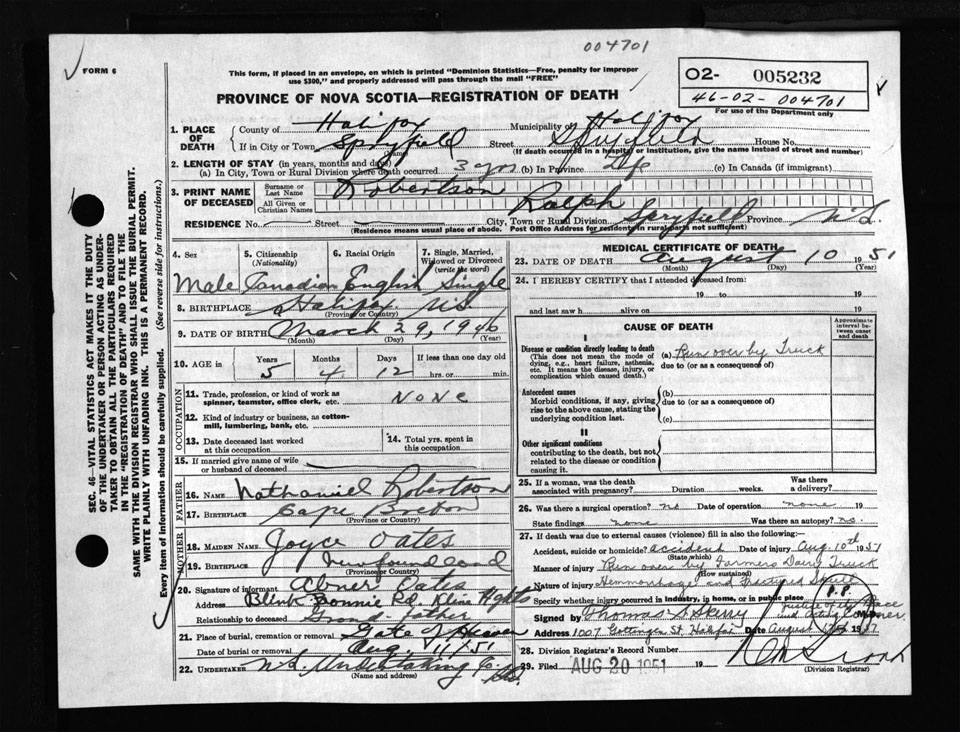 004701
FORM 6
This form, if placed in an envelope, on which is printed "Dominion Statistics—Free, penalty for improper
use $300," and properly addressed will pass through the mail "FREE"
O2- 005232
46-02-004701
For use of the Department only
PROVINCE OF NOVA SCOTIA—REGISTRATION OF DEATH
1. PLACE OF DEATH
County of Halifax Municipality of Halifax
If in City or Town Spryfield Street Spryfield House No.
(If death occurred in a hospital or institution, give the name instead of street and number)
2. LENGTH OF STAY (in years, months and days)
(a) In City, Town or Rural Division where death occurred 3 yrs (b) In Province Life (c) In Canada (if immigrant)
3. PRINT NAME OF DECEASED
Surname or Last Name Robertson
All Given or Christian Names Ralph
RESIDENCE No. — Street — City, Town or Rural Division Spryfield Province N.S.
(Residence means usual place of abode. Post Office Address for residents in rural parts not sufficient)
4. Sex
5. Citizenship (Nationality)
6. Racial Origin
7. Single, Married, Widowed or Divorced (write the word)
Male Canadian English Single
8. BIRTHPLACE Halifax NS
(Province or Country)
9. DATE OF BIRTH March 29, 1946
(Month) (Day) (Year)
10. AGE in Years Months Days If less than one day old
5 4 12 hrs. or min.
OCCUPATION
11. Trade, profession, or kind of work as spinner, teamster, office clerk, etc. NONE
12. Kind of industry or business, as cotton-mill, lumbering, bank, etc.
13. Date deceased last worked at this occupation
14. Total yrs. spent in this occupation
15. If married give name of wife or husband of deceased —
FATHER
16. NAME Nathaniel Robertson
17. BIRTHPLACE Cape Breton
(Province or Country)
MOTHER
18. MAIDEN NAME Joyce Oates
19. BIRTHPLACE Newfoundland
(Province or Country)
20. Signature of informant Abner Oates
Address Blink Bonnie Rd. Kline Hghts
Relationship to deceased Grand-father
21. Place of burial, cremation or removal Gate of Heaven
Date of burial or removal Aug. 11/51
22. UNDERTAKER N.S. Undertaking Co.
(Name and address)
MEDICAL CERTIFICATE OF DEATH
23. DATE OF DEATH August 10 1951
(Month) (Day) (Year)
24. I HEREBY CERTIFY that I attended deceased from
19 to 19
and last saw h alive on 19
CAUSE OF DEATH
Approximate interval between onset and death
I
Disease or condition directly leading to death
(This does not mean the mode of dying, e.g., heart failure, asthenia, etc. It means the disease, injury, or complication which caused death.)
(a) Run over by Truck
due to (or as a consequence of)
Antecedent causes
Morbid conditions, if any, giving rise to the above cause, stating the underlying condition last.
(b)
due to (or as a consequence of)
(c)
II
Other significant conditions
contributing to the death, but not related to the disease or condition causing it.
25. If a woman, was the death associated with pregnancy? Duration weeks. Was there a delivery?
26. Was there surgical operation? no Date of operation none 19
State findings none Was there an autopsy? no.
27. If death was due to external causes (violence) fill in also the following:
Accident, suicide or homicide? accident Date of injury Aug. 10th 1951
(State which)
Manner of injury Run over by Farmers Dairy Truck
(How sustained)
Nature of injury Hemmorhage and Fractured Skull
Specify whether injury occurred in Industry, in home, or in public place P.P.
Signed by Thomas Justice of the Peace
and Acting Coroner.
Address 1007 Halifax Date August 1951
28. Division Registrar's Record Number
29. Filed AUG 20 1951 19
(Division Registrar)
SEC. 46—VITAL STATISTICS ACT MAKES IT THE DUTY
OF THE UNDERTAKER OR PERSON ACTING AS UNDER-
TAKER TO OBTAIN ALL THE PARTICULARS REQUIRED
IN THE "REGISTRATION OF DEATH" AND TO FILE THE
SAME WITH THE DIVISION REGISTRAR WHO SHALL ISSUE THE BURIAL PERMIT.
WRITE PLAINLY WITH UNFADING INK. THIS IS A PERMANENT RECORD.
Every item of information should be carefully supplied. (See reverse side for instructions.)